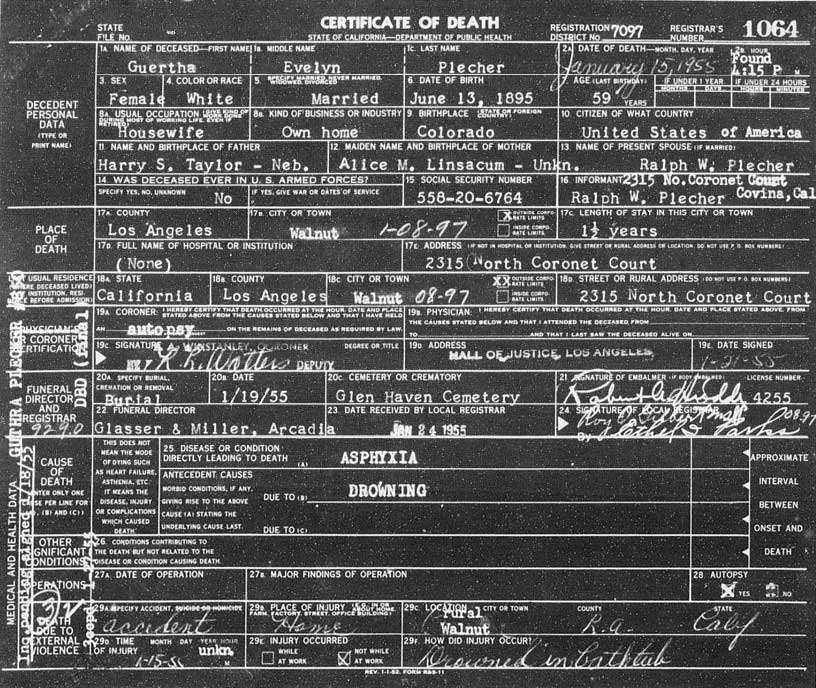 CERTIFICATE OF DEATH
STATE FILE No.
STATE OF CALIFORNIA—DEPARTMENT OF PUBLIC HEALTH
REGISTRATION DISTRICT No. 7097
REGISTRAR'S NUMBER 1064
1A. NAME OF DECEASED—FIRST NAME
1B. MIDDLE NAME
1C. LAST NAME
2A. DATE OF DEATH—MONTH, DAY, YEAR
2B. HOUR
Guertha Evelyn Plecher January 15, 1955 Found 4:15 P
DECEDENT PERSONAL DATA (TYPE OR PRINT NAME)
3. SEX
4. COLOR OR RACE
5. SPECIFY MARRIED, NEVER MARRIED, WIDOWED, DIVORCED
6. DATE OF BIRTH
AGE (LAST BIRTHDAY)
IF UNDER 1 YEAR
IF UNDER 24 HOURS
MONTHS DAYS HOURS MINUTES
Female White Married June 13, 1895 59 YEARS
8A. USUAL OCCUPATION (GIVE KIND OF WORK DONE DURING MOST OF WORKING LIFE, EVEN IF RETIRED)
8B. KIND OF BUSINESS OR INDUSTRY
9. BIRTHPLACE (STATE OR FOREIGN COUNTRY)
10. CITIZEN OF WHAT COUNTRY
Housewife Own home Colorado United States of America
11. NAME AND BIRTHPLACE OF FATHER
12. MAIDEN NAME AND BIRTHPLACE OF MOTHER
13. NAME OF PRESENT SPOUSE (IF MARRIED)
Harry S. Taylor - Neb. Alice M. Linsacum - Unkn. Ralph W. Plecher
14. WAS DECEASED EVER IN U. S. ARMED FORCES?
SPECIFY YES, NO, UNKNOWN No
IF YES, GIVE WAR OR DATES OF SERVICE
15. SOCIAL SECURITY NUMBER
558-20-6764
16. INFORMANT 2315 No. Coronet Court
Ralph W. Plecher Covina, Cal
PLACE OF DEATH
17A. COUNTY
Los Angeles
17B. CITY OR TOWN
Walnut 1-08-97
X OUTSIDE CORPORATE LIMITS
INSIDE CORPORATE LIMITS
17C. LENGTH OF STAY IN THIS CITY OR TOWN
1½ years
17D. FULL NAME OF HOSPITAL OR INSTITUTION
(None)
17E. ADDRESS (IF NOT IN HOSPITAL OR INSTITUTION, GIVE STREET OR RURAL ADDRESS OR LOCATION. DO NOT USE P. O. BOX NUMBERS)
2315 North Coronet Court
USUAL RESIDENCE
18A. STATE
California
18B. COUNTY
Los Angeles
18C. CITY OR TOWN
Walnut 08-97
XX OUTSIDE CORPORATE LIMITS
INSIDE CORPORATE LIMITS
18D. STREET OR RURAL ADDRESS (DO NOT USE P. O. BOX NUMBERS)
2315 North Coronet Court
PHYSICIAN'S OR CORONER'S CERTIFICATION
19A. CORONER: I HEREBY CERTIFY THAT DEATH OCCURRED AT THE HOUR, DATE AND PLACE STATED ABOVE FROM THE CAUSES STATED BELOW AND THAT I HAVE HELD
AN autopsy ON THE REMAINS OF DECEASED AS REQUIRED BY LAW.
19B. PHYSICIAN: I HEREBY CERTIFY THAT DEATH OCCURRED AT THE HOUR, DATE AND PLACE STATED ABOVE, FROM THE CAUSES STATED BELOW AND THAT I ATTENDED THE DECEASED FROM
TO AND THAT I LAST SAW THE DECEASED ALIVE ON
19C. SIGNATURE
WINSTANLEY, CORONER
DEGREE OR TITLE
DEPUTY
19D. ADDRESS
HALL OF JUSTICE, LOS ANGELES
19E. DATE SIGNED
1-21-55
FUNERAL DIRECTOR AND REGISTRAR
929.0
20A. SPECIFY BURIAL, CREMATION OR REMOVAL
Burial
20B. DATE
1/19/55
20C. CEMETERY OR CREMATORY
Glen Haven Cemetery
21. SIGNATURE OF EMBALMER (IF BODY EMBALMED)
LICENSE NUMBER
4255
22. FUNERAL DIRECTOR
Glasser & Miller, Arcadia
23. DATE RECEIVED BY LOCAL REGISTRAR
JAN 24 1955
24. SIGNATURE OF LOCAL REGISTRAR
08-97
CAUSE OF DEATH
ENTER ONLY ONE CAUSE PER LINE FOR (A), (B) AND (C)
THIS DOES NOT MEAN THE MODE OF DYING SUCH AS HEART FAILURE, ASTHENIA, ETC. IT MEANS THE DISEASE, INJURY OR COMPLICATIONS WHICH CAUSED DEATH.
25. DISEASE OR CONDITION DIRECTLY LEADING TO DEATH (A) ASPHYXIA
ANTECEDENT CAUSES
MORBID CONDITIONS, IF ANY, GIVING RISE TO THE ABOVE CAUSE (A) STATING THE UNDERLYING CAUSE LAST.
DUE TO (B) DROWNING
DUE TO (C)
APPROXIMATE INTERVAL BETWEEN ONSET AND DEATH
OTHER SIGNIFICANT CONDITIONS
26. CONDITIONS CONTRIBUTING TO THE DEATH BUT NOT RELATED TO THE DISEASE OR CONDITION CAUSING DEATH.
OPERATIONS
27A. DATE OF OPERATION
27B. MAJOR FINDINGS OF OPERATION
28. AUTOPSY
X YES NO
DEATH DUE TO EXTERNAL VIOLENCE
29A. SPECIFY ACCIDENT, SUICIDE OR HOMICIDE
accident
29B. PLACE OF INJURY (E.G., IN OR ABOUT HOME, FARM, FACTORY, STREET, OFFICE BUILDING)
Home
29C. LOCATION CITY OR TOWN COUNTY STATE
rural Walnut L.A. Calif
29D. TIME OF INJURY MONTH DAY YEAR HOUR
1-15-55 unkn. M
29E. INJURY OCCURRED
WHILE AT WORK
X NOT WHILE AT WORK
29F. HOW DID INJURY OCCUR?
Drowned in bathtub
REV. 1-1-52 FORM R&S-11
MEDICAL AND HEALTH DATA